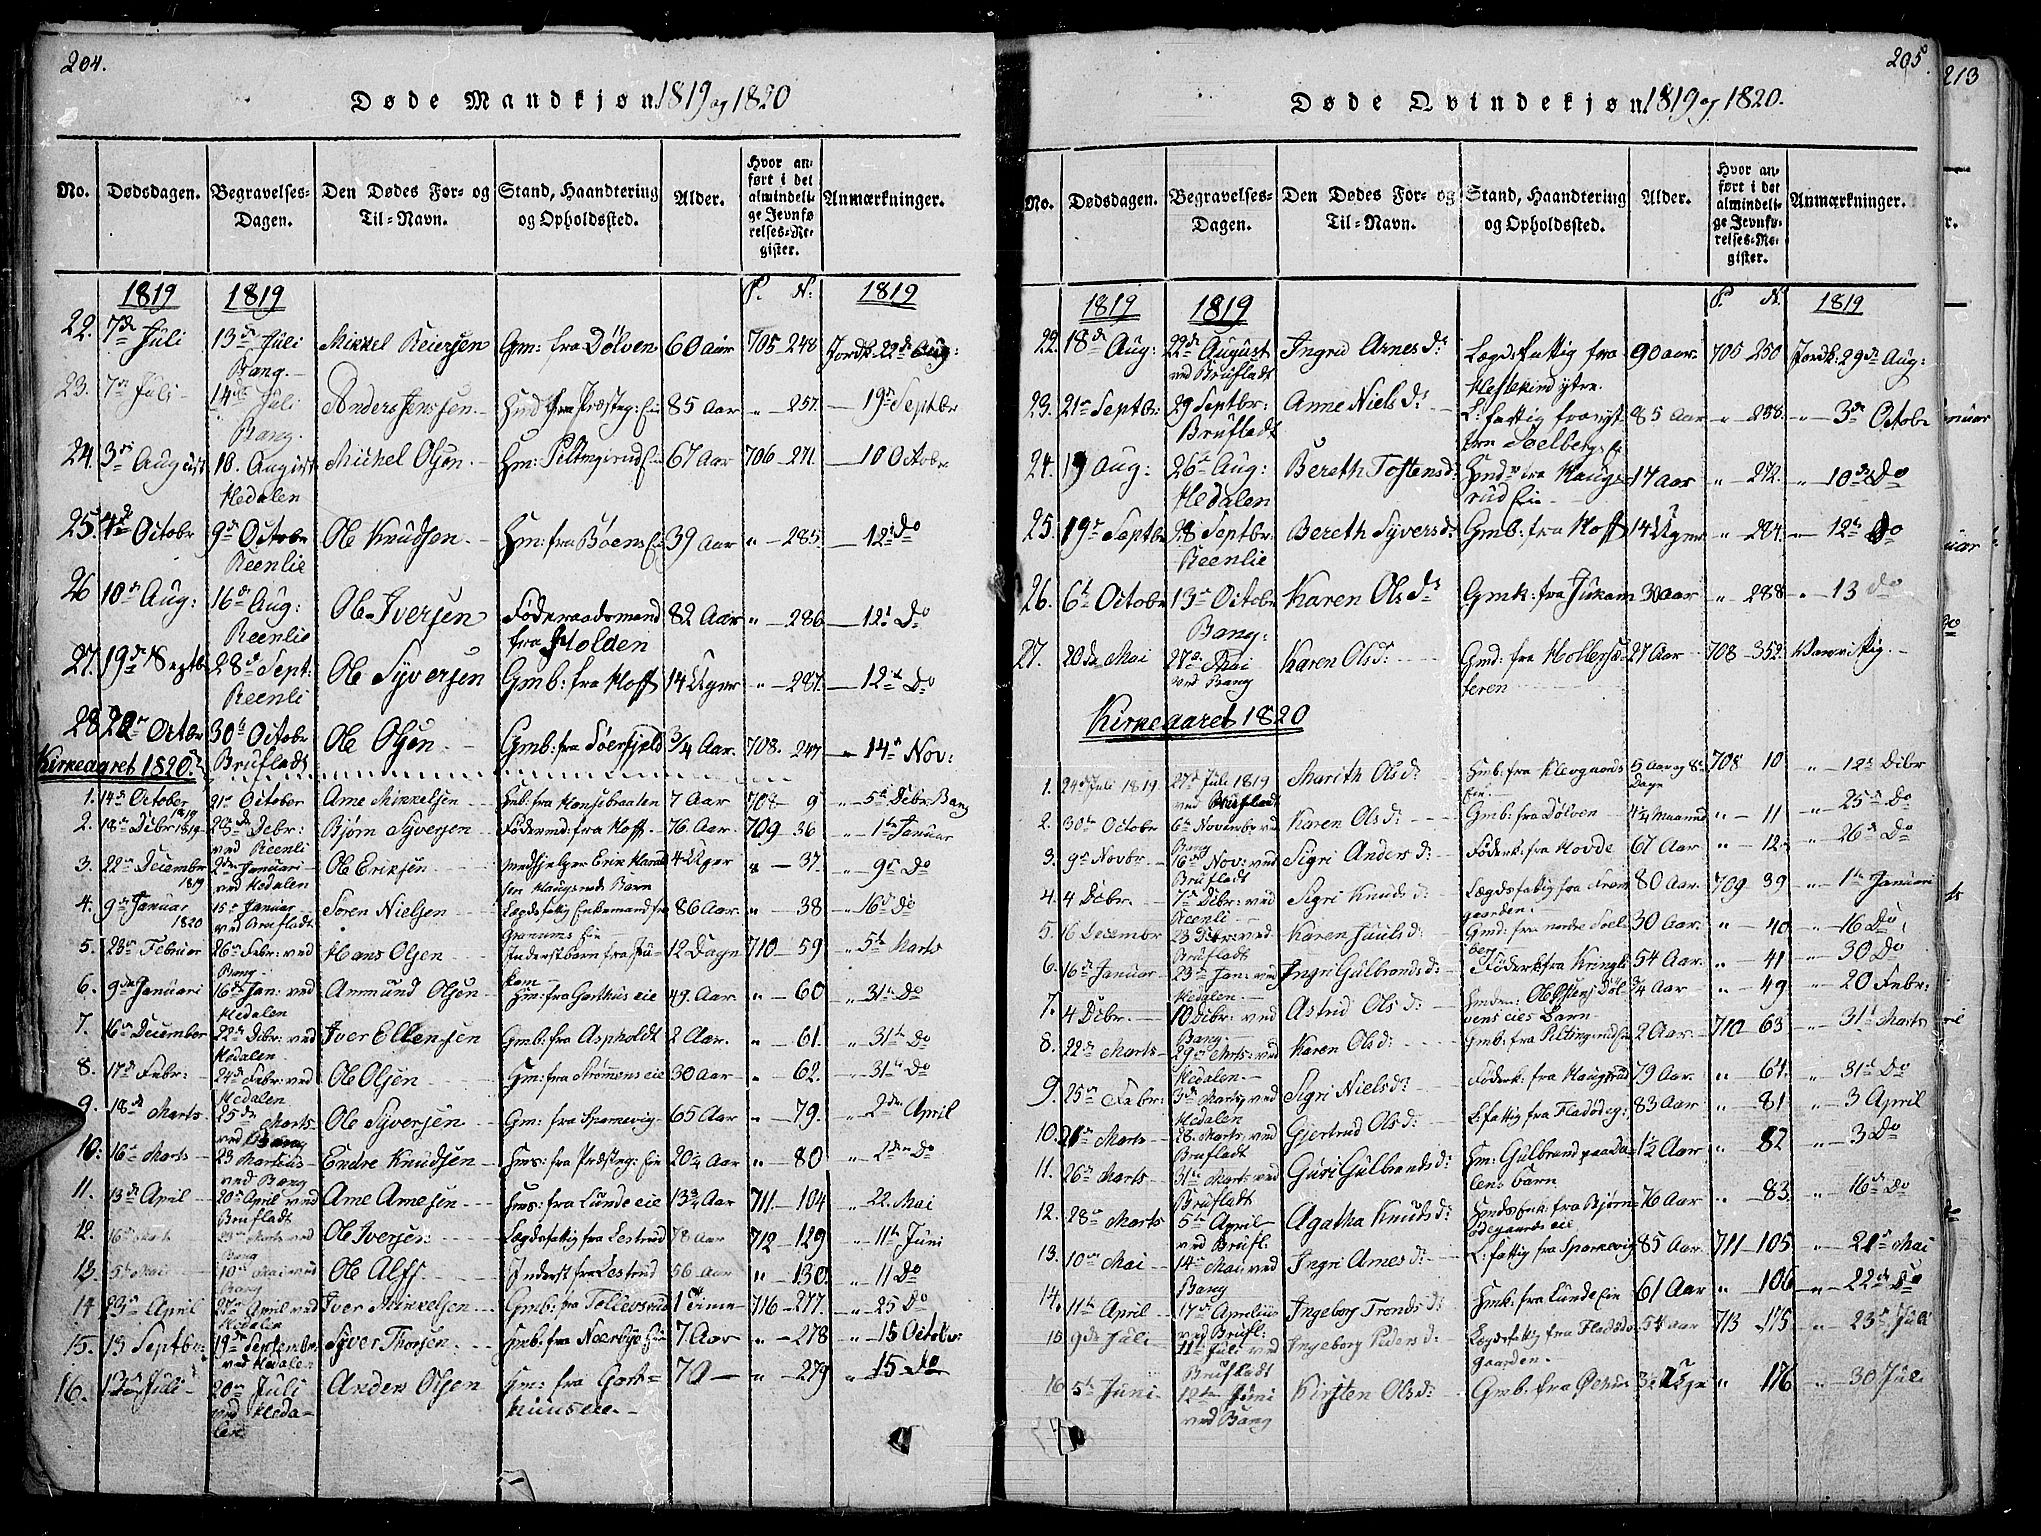 204.
Døde Mandkjøn 1819 og 1820
No. Dødsdagen. Begravelses-Dagen. Den Dødes For- og Til-Navn. Stand, Haandtering og Opholdssted. Alder. Hvor anført i det almindelige Jevnførelses-Register. Anmærkninger.
1819 1819 P. N: 1819
22. 7de Juli 13de Juli Bang. Mikkel Reiersen Gm: fra Dølven 60 aar 705 248 Jordk. 22de Aug:
23. 7de Juli 14de Juli Bang. Anders Jenssen Præsteg: Eie 85 Aar " 257 19de Septbr
24. 3de August 10. August Hedalen Michel Olsen Hm: Piltingsrud Eie 67 Aar 706 271 10 Octobr
25. 4de Octobr 9de Octobr Reenlie Ole Knudsen Hm: fra Bøens Eie 39 Aar " 285 12te Do
26 10de Aug: 16de Aug: Reenlie Ole Iversen Föderaadsmand fra Holden 82 Aar " 286 12te Do
27. 19de Septbr 28de Sept: Reenli Ole Syversen Gmb: fra Hoff 14 Uger " 287. 12te Do
28 22de Octbr 30te Octobr Brufladt Ole Olsen Gmb: fra Søerfjeld 3/4 Aar. 708. 247 14de Nov:
Kirkeaaret 1820.
1. 14de October 1819 21de October Arne Mikkelsen Gmb: fra Hansebraaten 7 Aar 708 9 " 5te Debr Bang
2. 18de Debr 1819 28de Debr: ved Reenli Bjørn Syversen Föderaad: fra Hoff 76 Aar. 709 36 " 1te Januar
3. 22de December 1819 2den Januari ved Hedalen Ole Eriksen Medhjelper Erik Haraldsen Haugsruds Barn 4 Uger " 37. " 9de Do
4. 9de Januar 1820 15de Januar ved Brufladt Søren Nielsen Lægdsfattig Enkemand fra Granums Eie 86 Aar. " 38 " 16de Do
5. 23de Februar 26de Febr: ved Bang Hans Olsen Inderstbarn fra Jukam 12 Dage 710 59 " 5te Marts
6. 9de Januari 16de Jan: ved Hedalen Ammund Olsen Hm: fra Garthus eie 49. Aar " 60 " 31te Do
7. 16de December 22de Debr: ved Hedalen Iver Ellensen Gmb: fra Aspholdt 2 Aar. " 61. " 31te Do
8. 17de Febr: 24de Febr: ved Hedalen Ole Olsen Hm: fra Strømens eie 30 Aar " 62. " 31te Do
9. 18de Marts 25de Marts ved Bang Ole Syversen Gm: fra Sparrevig 65 Aar " 79. " 2den April
10. 16de Marts 23 Martius ved Bang Endre Knudsen Hms: fra Præsteg: Eie 20 1/4 Aar " 80 " 2den Do
11. 13de April 20de April ved Brufladt Arne Arnesen Hms: fra Lunde eie 13 3/4 Aar 711 104 " 22. Mai
12. 16de Marts 23de Marts ved Bang Ole Iversen Lægdsfattig fra Lestrud 78 Aar 712 129 " 11te Juni
13. 5te Mai 10de Mai ved Bang Ole Alfs. Inderst fra Lestrud 56 Aar " 130. " 11 Do
14 23de April 27de April ved Hedalen Iver Mikkelsen Gmb: fra Tollevsrud 1 Time 716 277. " 25 Do
15. 13 Septbr: 19de September ved Hedalen Syver Thorsen Gmb: fra Noersvje Eie 7 Aar " 278 " 15 October
16. 13de Juli 20de Juli ved Hedalen Anders Olsen Gm: fra Garthuuseie. 70 " 279 " 15 Do
205.
Døde Qvindekjøn 1819 og 1820.
No. Dødsdagen. Begravelses-Dagen. Den Dødes For- og Til-Navn. Stand, Haandtering og Opholdssted. Alder. Hvor anført i det almindelige Jevnførelses-Register. Anmærkninger.
1819 1819 P. N. 1819
22. 18de Aug: 22de August ved Brufladt Ingrid Arnesd: Lægdsfattig fra Heslekindytre. 90 aar. 705 250 Jordk: 29de Aug:
23. 21de Septbr: 29 Septbr: Brufladt Anne Nielsd: L: fattig fra ystren Soelberg Eie 85 Aar " 288. " 3de Octobr
24. 19 Aug: 26de Aug: Hedalen Bereth Tostensd: Hmd: fra Haugsrud Eie 17 aar " 272. " 10de Do
25. 19de Septbr 28 Septbr: Reenlie Bereth Syversd: Gmb: fra Hoff 14 Uger " 284. " 12te Do
26. 6te Octobr 13de Octobr Bang: Karen Olsd: Gmk: fra Jukam 30 aar " 288 " 13 Do
27. 20de Mai 27de Mai ved Bang Karen Olsd: Gmd: fra Hollerseteren 27 Aar 708 352 Vanvittig.
Kirkeaaret 1820
1. 24de Juli 1819 27de Juli 1819 ved Brufladt Marith Olsd: Hmb: fra Klevgaards Eie 5 Aar og 8 Dage 708 10 " 12te Debr
2. 30te Octobr 6te November ved Bang Karen Olsd: Gmb: fra Dølven 4 1/4 Maaned " 11 " 25de Do
3. 9de Novbr. 16de Nov: ved Brufladt Sigri Andersd: Föderk: fra Hovde 67 Aar " 12. " 26de Do
4. 4 Debr. 7de Debr: ved Reenli Sigri Knudsd: Lægdsfattig fra gaarden. 80 Aar. 709 39 " 1te Januari
5. 16 Decembr 23 Debr: ved Brufladt Karen Juulsd: Gmd: fra nordre Soelberg 30 Aar. " 40 " 16 Do
6. 16de Januar 23de Jan: ved Hedalen Ingri Gulbrandsd: Föderk: fra Kringli 54 Aar. " 41 " 30 Do
7. 4 Debr. 10 Debr: ved Bang Astrid Olsd: Ole Ostens Dølvens eies Barn 3/4 Aar " 49 " 20 Febr:
8. 22de Marts 29de Marts: ved Hedalen Karen Olsd: Gmb: fra Piltingsrud 2 Aar 710 63 " 31te Marts
9. 25de Febr: 3de Marts ved Hedalen Sigri Nielsd: Föderk: fra Haugsrud 79 Aar. " 64 " 31te Do
10. 21de Marts 28. Marts: ved Brufladt Gjertrud Olsd: L: fattig fra Fladøeg: 83 Aar. " 81 " 3 April
11. 26de Marts 31te Marts ved Brufladt Guri Gulbrandsd: Hm: Gulbrand paa Dalens barn 1/2 Aar " 82 " 3 Do
12. 28de Marts 5te April ved Brufl: Agatha Knudsd: fra Bjørnødegaards eie 76 Aar " 83. " 16de Do
13. 10de Mai 14de Mai ved Bang Ingri Arnesd: L. fattig fra Sparrevig 85 Aar 711 105. " 21de Mai
14. 11te April 17de Aprilius ved Brufl: Ingeborg Trondsd: Hmk: fra Lunde Eie 61 Aar " 106 " 22de Do
15 9de Juli 11te Juli ved Brufladt Ingeborg Pedersd: Lægdsfattig fra Fladødegaarden. 54 aar 713 175 " 23de Juli
16 5te Juni 12te Juni ved Bang Kirsten Olsd: Gmb. fra Øehus 3 1/2 Uge " 176 " 30 Juli
213